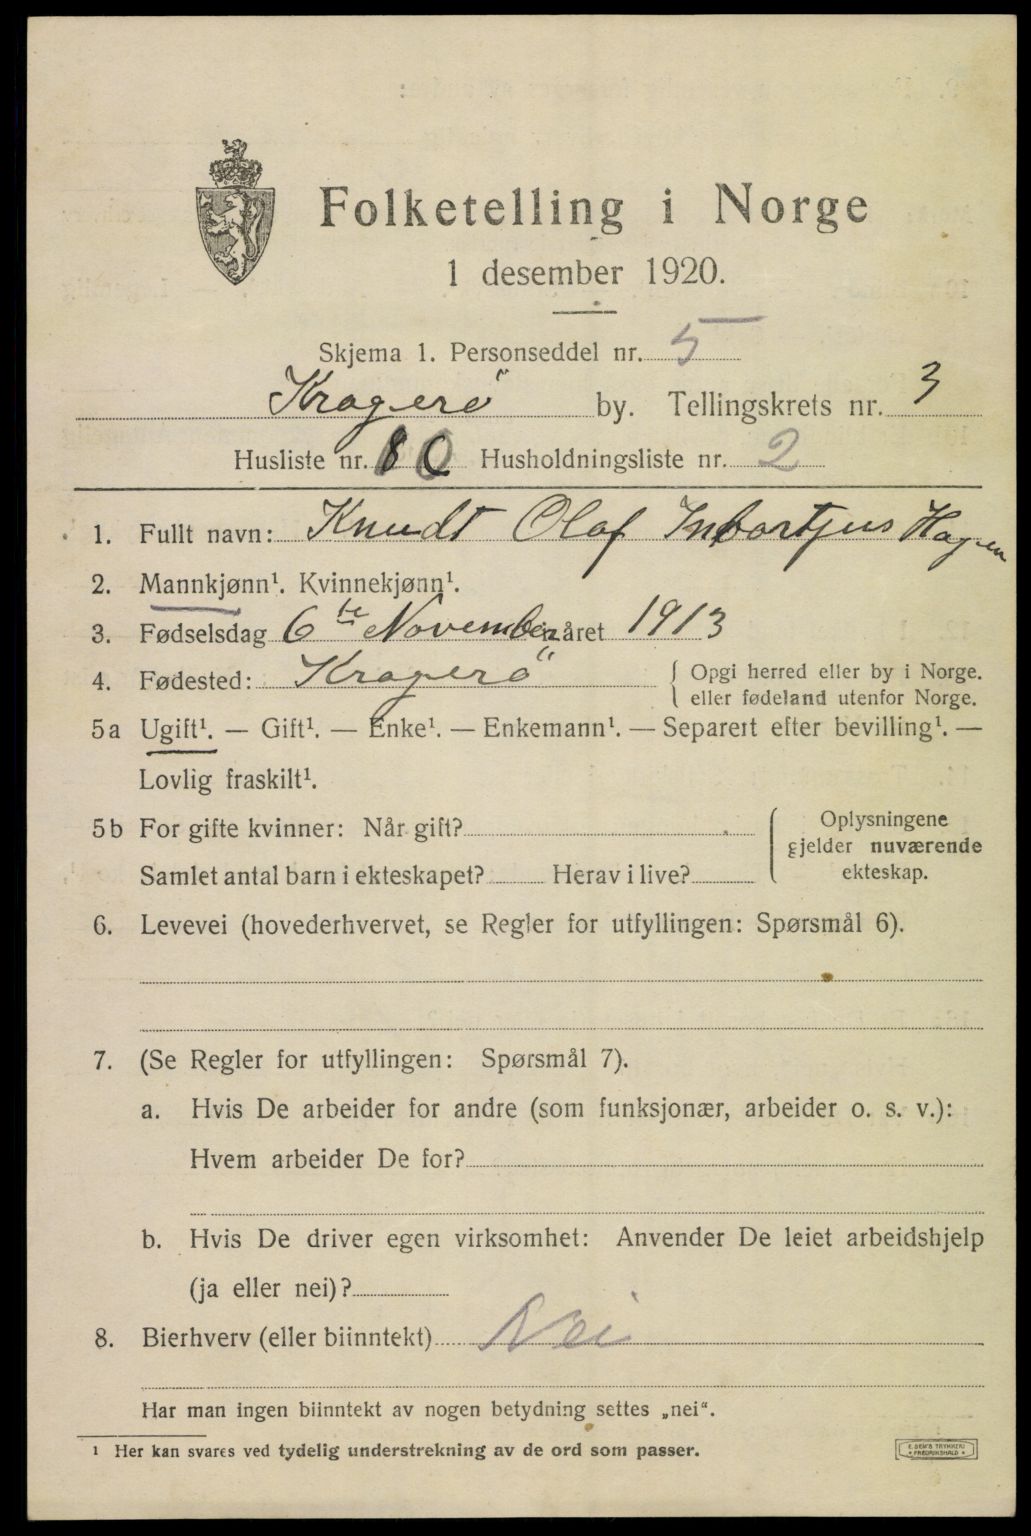 Folketelling i Norge
1 desember 1920.
Skjema 1. Personseddel nr. 5
Kragerö by. Tellingskrets nr. 3
Husliste nr. 80 Husholdningsliste nr. 2
1. Fullt navn: Knudt Olaf Hagen
2. Mannkjønn¹. Kvinnekjønn¹.
3. Fødselsdag 6te November året 1913
4. Fødested: Kragerö { Opgi herred eller by i Norge.
eller fødeland utenfor Norge.
5a Ugift¹. — Gift¹. — Enke¹. — Enkemann¹. — Separert efter bevilling¹. —
Lovlig fraskilt¹.
5b For gifte kvinner: Når gift?
Samlet antal barn i ekteskapet? Herav i live?
Oplysningene
gjelder nuværende
ekteskap.
6. Levevei (hovederhvervet, se Regler for utfyllingen: Spørsmål 6).
7. (Se Regler for utfyllingen: Spørsmål 7).
a. Hvis De arbeider for andre (som funksjonær, arbeider o. s. v.):
Hvem arbeider De for?
b. Hvis De driver egen virksomhet: Anvender De leiet arbeidshjelp
(ja eller nei)?
8. Bierhverv (eller biinntekt) Nei
Har man ingen biinntekt av nogen betydning settes „nei“.
¹ Her kan svares ved tydelig understrekning av de ord som passer.
E. SEM'S TRYKKERI
FREDRIKSHALD